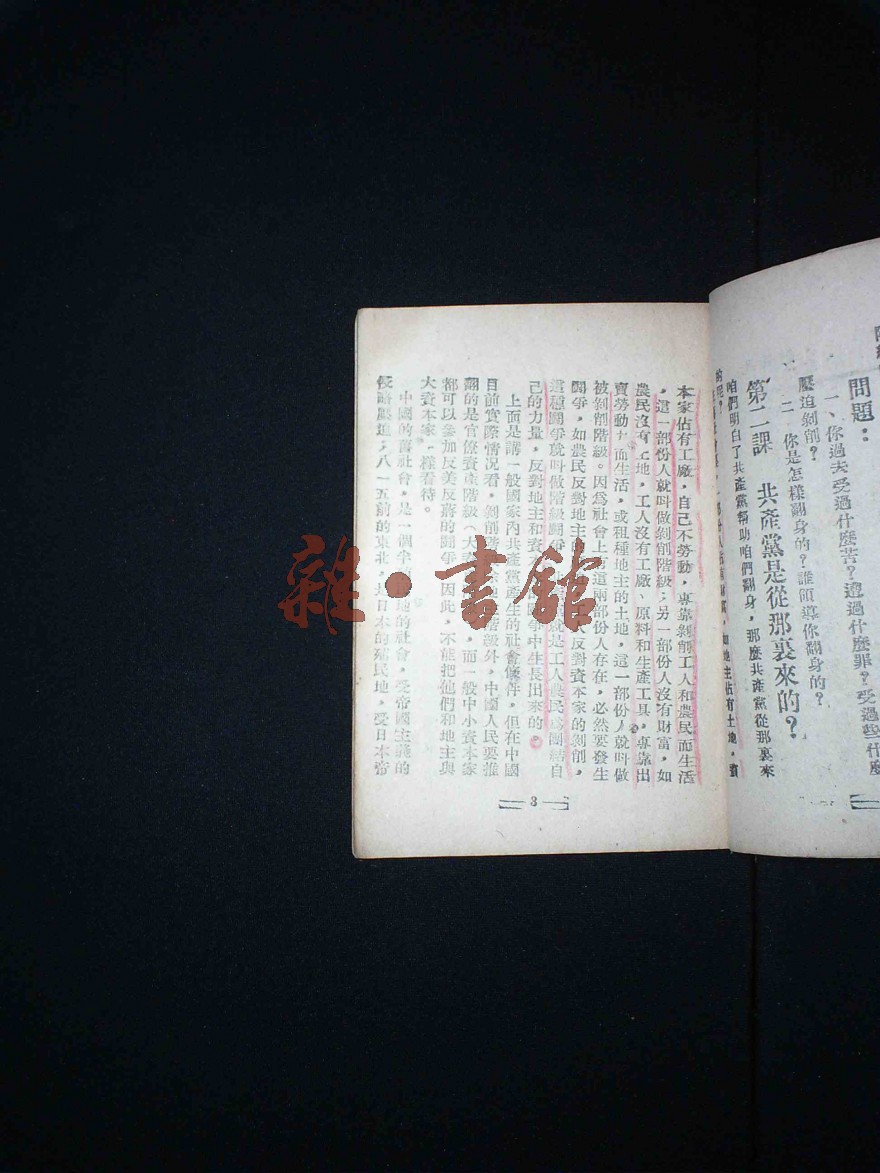 問題：
一、你過去受過什麽苦？遭過什麽罪？受過些什麽
壓迫剝削？
二、你是怎樣翻身的？誰領導你翻身的？
第二課　共產黨是從那裏來的？
咱們明白了共產黨幫助咱們翻身，那麽共產黨從那裏來
的呢？
主佔有土地，資
本家佔有工廠，自己不勞動，專靠剝削工人和農民而生活
，這一部份人就叫做剝削階級；另一部份人沒有財富，如
農民沒有土地，工人沒有工廠、原料和生產工具，專靠出
賣勞動力而生活，或租種地主的土地，這一部份人就叫做
被剝削階級。因爲社會上有這兩部份人存在，必然要發生
鬪爭，如農民反對地主反對資本家的剝削，
這種鬪爭就叫做階級鬪爭是工人農民爲團結自
己的力量，反對地主和資鬪爭中生長出來的。
上面是講一般國家內共產黨產生的社會條件，但在中國
目前實際情況看，剝削階級外，中國人民要推
翻的是官僚資產階級（大，而一般中小資本家
都可以參加反美反蔣的鬪爭，因此，不能把他們和地主與
大資本家一樣看待。
中國的舊社會，是一個半的社會，受帝國主義的
侵略壓迫，八一五前的東北，是日本的殖民地，受日本帝
3
雜·書館